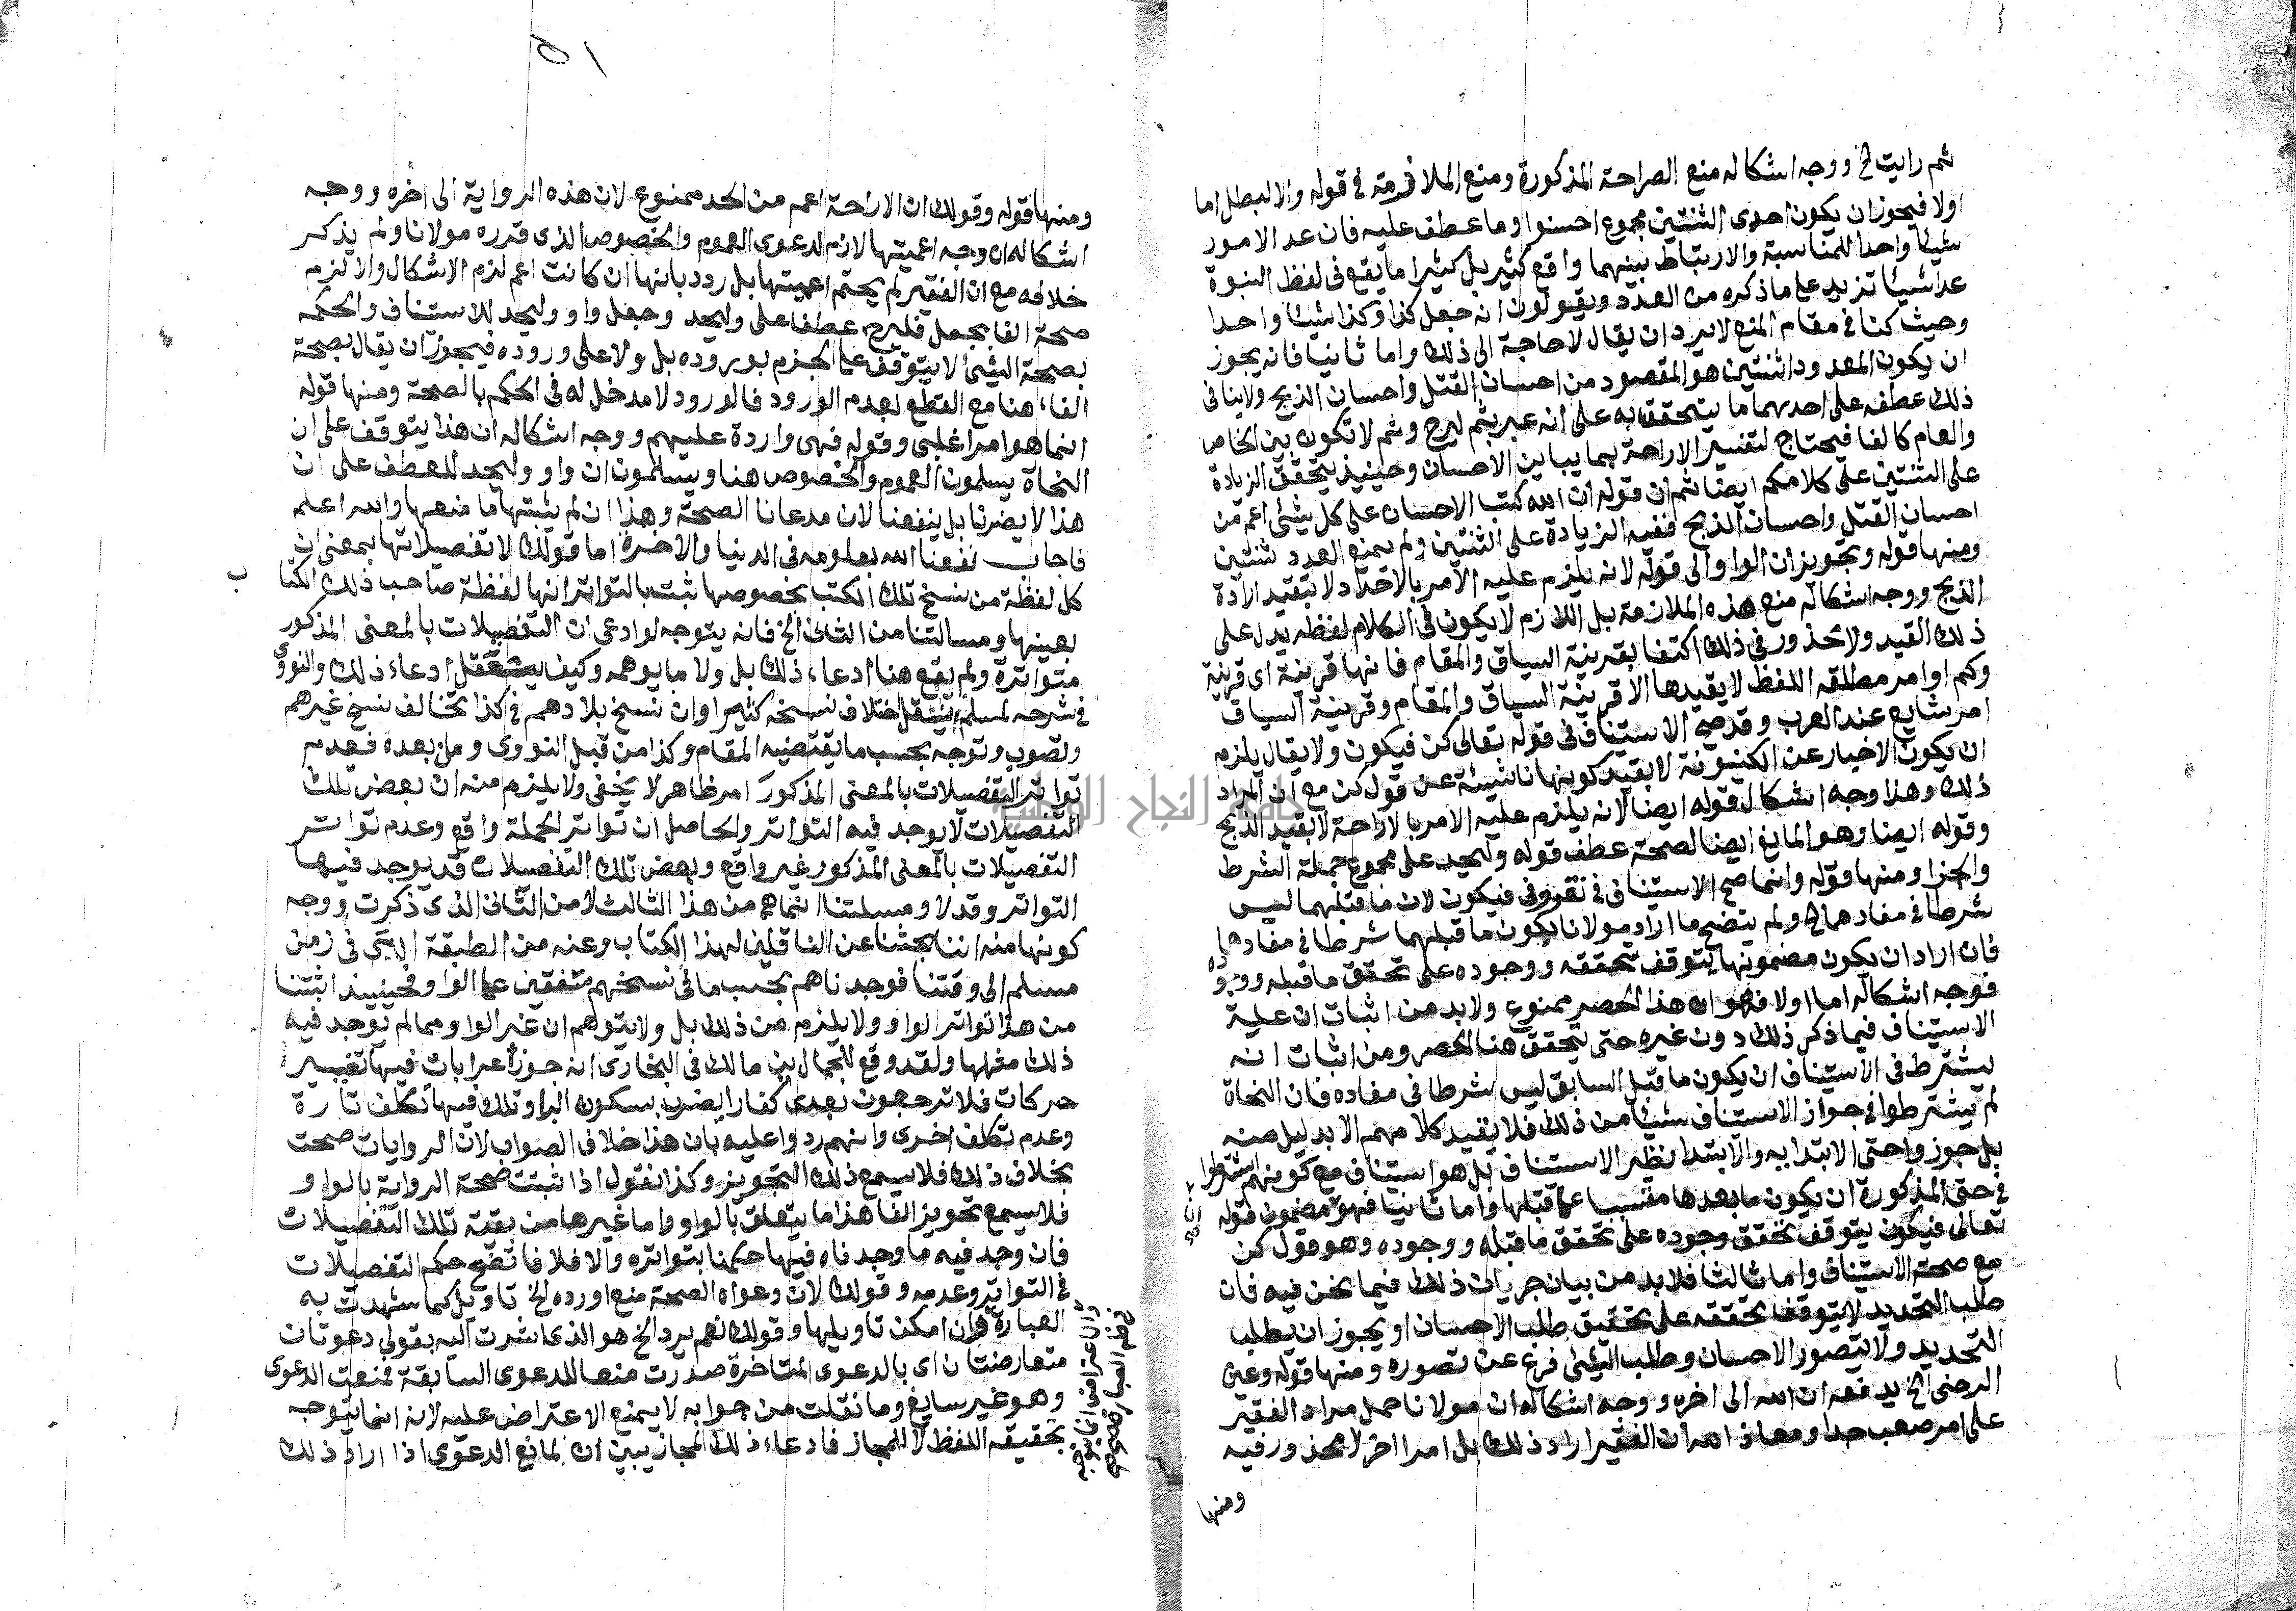 ثم رايت الخ ووجه اشكاله منع الصراحة المذكورة ومنع الملازمة في قوله والا لبطل اما
اولا فيجوز ان يكون احدى الثنتين مجموع احسنوا وما عطف عليه فان عد الامور
شيئا واحدا للمناسبة والارتباط بينهما واقع كثير بل كثيرا ما يقع في لفظ النبوة
عد اشياء تزيد على ما ذكره من العدد ويقولون انه جعل كذا وكذا شيئا واحدا
وحيث كنا في مقام المنع لا يرد ان يقال لا حاجة الى ذلك واما ثانيا فانه يجوز
ان يكون المعدود اثنتين هو المقصود من احسان القتل واحسان الذبح ولا ينافي
ذلك عطفه على احدهما ما يتحقق به على انه عبر بثم ليرح وثم لا تكون بين الخاص
والعام كالفا فيحتاج لتفسير الاراحة بما يباين الاحسان وحينيذ يتحقق الزيادة
على الثنتين على كلامكم ايضا ثم ان قوله ان الله كتب الاحسان على كل شئ اعم من
احسان القتل واحسان الذبح ففيه الزيادة على الثنتين ولم يمنع العدد ثنتين
ومنها قوله وتجويز ان الواو الى قوله لانه يلزم عليه الامر بالاحداد لا بقيد ارادة
الذبح ووجه اشكاله منع هذه الملازمة بل اللازم لا يكون في الكلام لفظه يدل على
ذلك القيد ولا محذور في ذلك اكتفا بقرينة السياق والمقام فانها قرينة اى قرينة
وكم اوامر مطلقه اللفظ لا يقيدها الا قرينة السياق والمقام وقرينة السياق
امر شايع عند العرب وقد صح الاستيناف في قوله تعالى كن فيكون ولا يقال يلزم
ان يكون الاخبار عن الكينونة لا بقيد كونها ناشيئة عن قول كن مع ان المراد
ذلك وهذا وجه اشكال قوله ايضا لانه يلزم عليه الامر بالاراحة لا بقيد الذبح
وقوله ايضا وهو المانع ايضا لصحة عطف قوله وليحد على مجموع جملة الشرط
والجزا ومنها قوله وانما صح الاستيناف في نقر وفي فيكون لان ما قبلهما ليس
شرطا في مفادهما الخ ولم يتضح ما اراد مولانا بكون ما قبلهما شرطا في مفادهما
فان اراد ان يكون مضمونها يتوقف تحققه ووجوده على تحقق ما قبله ووجوده
فوجه اشكاله اما اولا فهو ان هذا الحصر ممنوع ولا بد من اثبات ان علية
الاستيناف فيما ذكر ذلك دون غيره حتى يتحقق هنا الحصر ومن اثبات انه
يشترط في الاستيناف ان يكون ما قبل السابق ليس شرطا في مفاده فان النحاة
لم يشترطوا في جواز الاستيناف شيئا من ذلك فلا يقيد كلامهم الا بدليل منه
بل جوزوا حتى الابتدايه والابتدا نظير الاستيناف بل هو استيناف مع كونهم اشترطوا
في حتى المذكورة ان يكون ما بعدها متسببا عما قبلها واما ثانيا فهو ان مضمون قوله
تعالى فيكون يتوقف تحقق وجوده على تحقق ما قبله ووجوده وهو قول كن
مع صحة الاستيناف واما ثالثا فلا بد من بيان جريان ذلك فيما نحن فيه فان
طلب التحديد لا يتوقف تحققه على تحقيق طلب الاحسان او يجوز ان يطلب
التحديد ولا يتصور الاحسان وطلب الشئ فرع عن تصوره ومنها قوله وعين
الرضى الخ يدفعه ان الله الى اخره ووجه اشكاله ان مولانا حمل مراد الفقير
على امر صعب جدا ومعاذ الله ان الفقير اراد ذلك بل امرا اخر لا محذور فيه
ومنها
٥١
ومنها قوله وقولك ان الاراحة اعم من الحد ممنوع لان هذه الرواية الى اخره ووجه
اشكاله ان وجه اعميتها لازم لدعوى العموم والخصوص الذى قرره مولانا ولم يذكر
خلافه مع ان الفقير لم يحتم اعميتها بل ردد بانها ان كانت اعم لزم الاشكال والا لزم
صحة الفا بجعل فليرح عطفا على وليحد وجعل واو وليحد للاستيناف والحكم
بصحة الشئ لا يتوقف على الجزم بوروده بل ولا على وروده فيجوز ان يقال بصحة
الفاء هنا مع القطع بعدم الورود فالورود لا مدخل له في الحكم بالصحة ومنها قوله
انما هو امر اغلبى وقوله فهى واردة عليهم ووجه اشكاله ان هذا يتوقف على ان
النحاة يسلمون العموم والخصوص هنا ويسلمون ان واو وليحد للعطف على ان
هذا لا يضرنا بل ينفعنا لان مدعانا الصحة وهذا ان لم يثبتها ما منعها والله اعلم
فاجاب نفعنا الله بعلومه في الدنيا والاخرة اما قولك لا تفصيلاتها بمعنى ان
كل لفظة من نسخ تلك الكتب بخصوصها ثبت بالتواتر انها لفظة صاحب ذلك الكتاب
بعينها ومسالتنا من الثانى الخ فانه يتوجه لو ادعى ان التفصيلات بالمعنى المذكور
متواترة ولم يقع هنا ادعاء ذلك بل ولا ما يوهمه وكيف يتعقل ادعاء ذلك والنووى
في شرحه لمسلم ينقل اختلاف نسخه كثيرا وان نسخ بلادهم في كذا تخالف نسخ غيرهم
وتصوب وتوجه بحسب ما يقتضيه المقام وكذا من قبل النووى ومن بعده فعدم
تواتر التفصيلات بالمعنى المذكور امر ظاهر لا يخفى ولا يلزم منه ان بعض تلك
التفصيلات لا يوجد فيه التواتر والحاصل ان تواتر الجملة واقع وعدم تواتر
التفصيلات بالمعنى المذكور غير واقع وبعض تلك التفصيلات قد يوجد فيها
التواتر وقد لا ومسلتنا انما هي من هذا الثالث لا من الثانى الذى ذكرت ووجه
كونها منه اننا بحثنا عن الناقلين لهذا الكتاب وعنه من الطبقة التى في زمن
مسلم الى وقتنا فوجدناهم بحسب ما في نسخهم متفقين على الواو فحينيذ اثبتنا
من هذا تواتر الواو ولا يلزم من ذلك بل ولا يتوهم ان غير الواو مما لم يوجد فيه
ذلك مثلها ولقد وقع للجمال بن مالك في البخارى انه جوز اعرابات فيها تغيير
حركات فلا ترجعون بعدى كفارا يضرب بسكون البا وتلك فيها تكلف تارة
وعدم تكلف اخرى وانهم ردوا عليه بان هذا خلاف الصواب لان الروايات صحت
بخلاف ذلك فلا يسمع ذلك التجويز وكذا نقول اذا ثبتت صحة الرواية بالواو
فلا يسمع تجويز الفا هذا ما يتعلق بالواو واما غيرها من بقية تلك التفصيلات
فان وجد فيه ما وجدناه فيها حكمنا بتواتره والا فلا فاتضح حكم التفصيلات
في التواتر وعدمه وقولك لان دعواه الصحة منع اورده الخ تاويل كما شهدت به
العبارة فان امكن تاويلها وقولك نعم يرد الخ هو الذى اشرت اليه بقولى دعوتان
متعارضتان اى بالدعوى المتاخرة صدرت منعا للدعوى السابقة فمنعت الدعوى
وهو غير سايغ وما نقلت من جوابه لا يمنع الاعتراض عليه لانه انما يتوجه
بحقيقه اللفظ لا للمجاز فادعاء ذلك المجاز يبين ان لمانع الدعوى اذا اراد ذلك
جامعة النجاح الوطنية